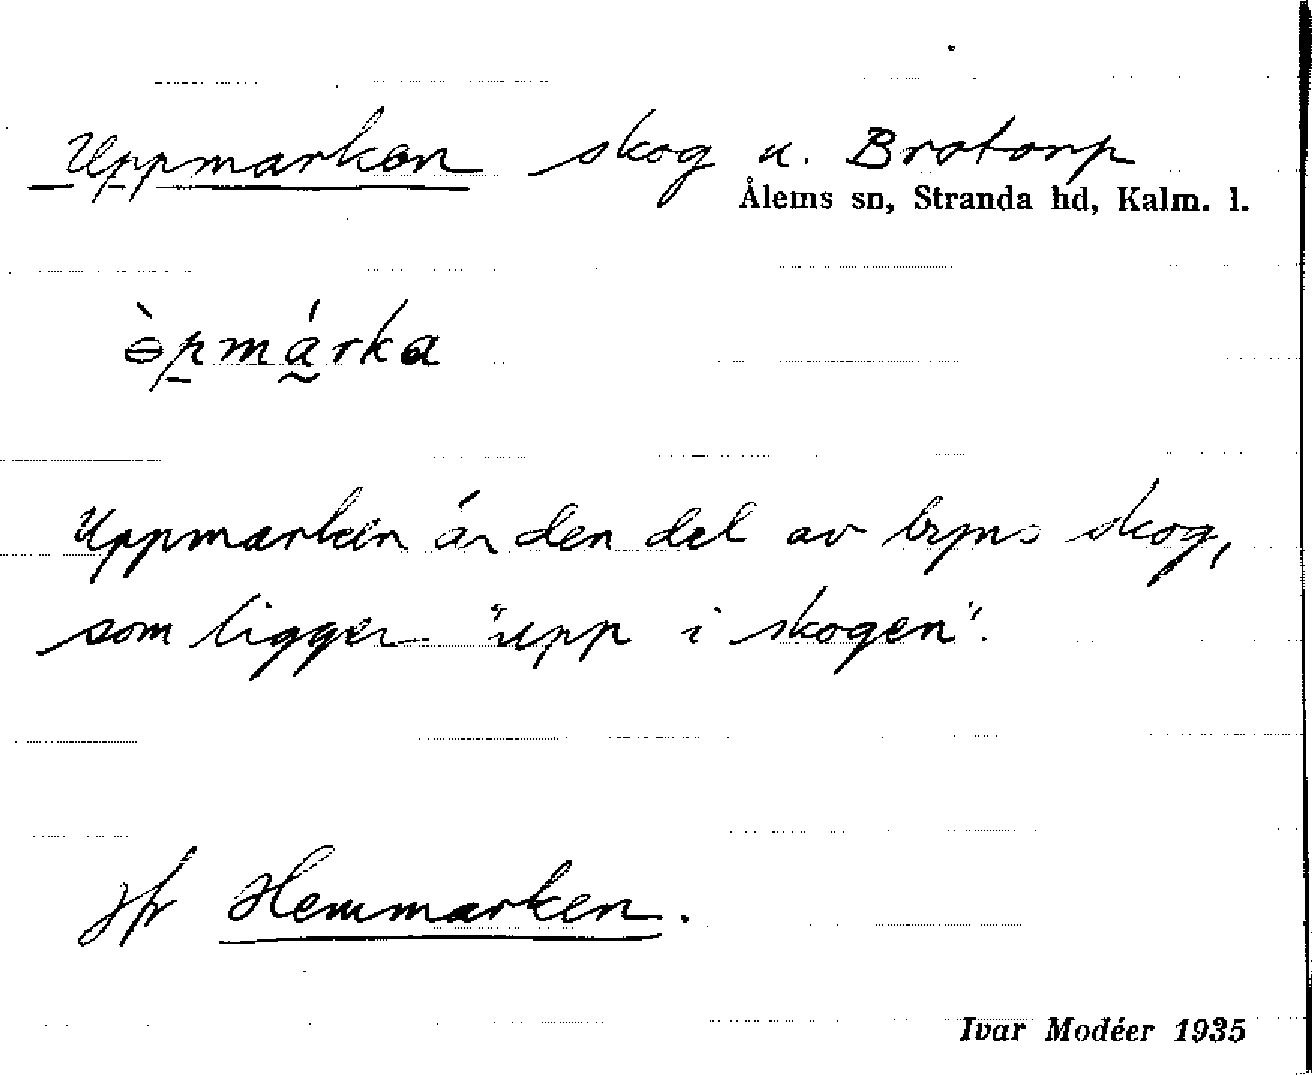 Uppmarken skog u. Brotorp
Ålems sn, Stranda hd, Kalm. l.
ɵ̀pmárka
Uppmarken är den del av byns skog,
som ligger "upp i skogen".
Jfr Hemmarken.
Ivar Modéer 1935